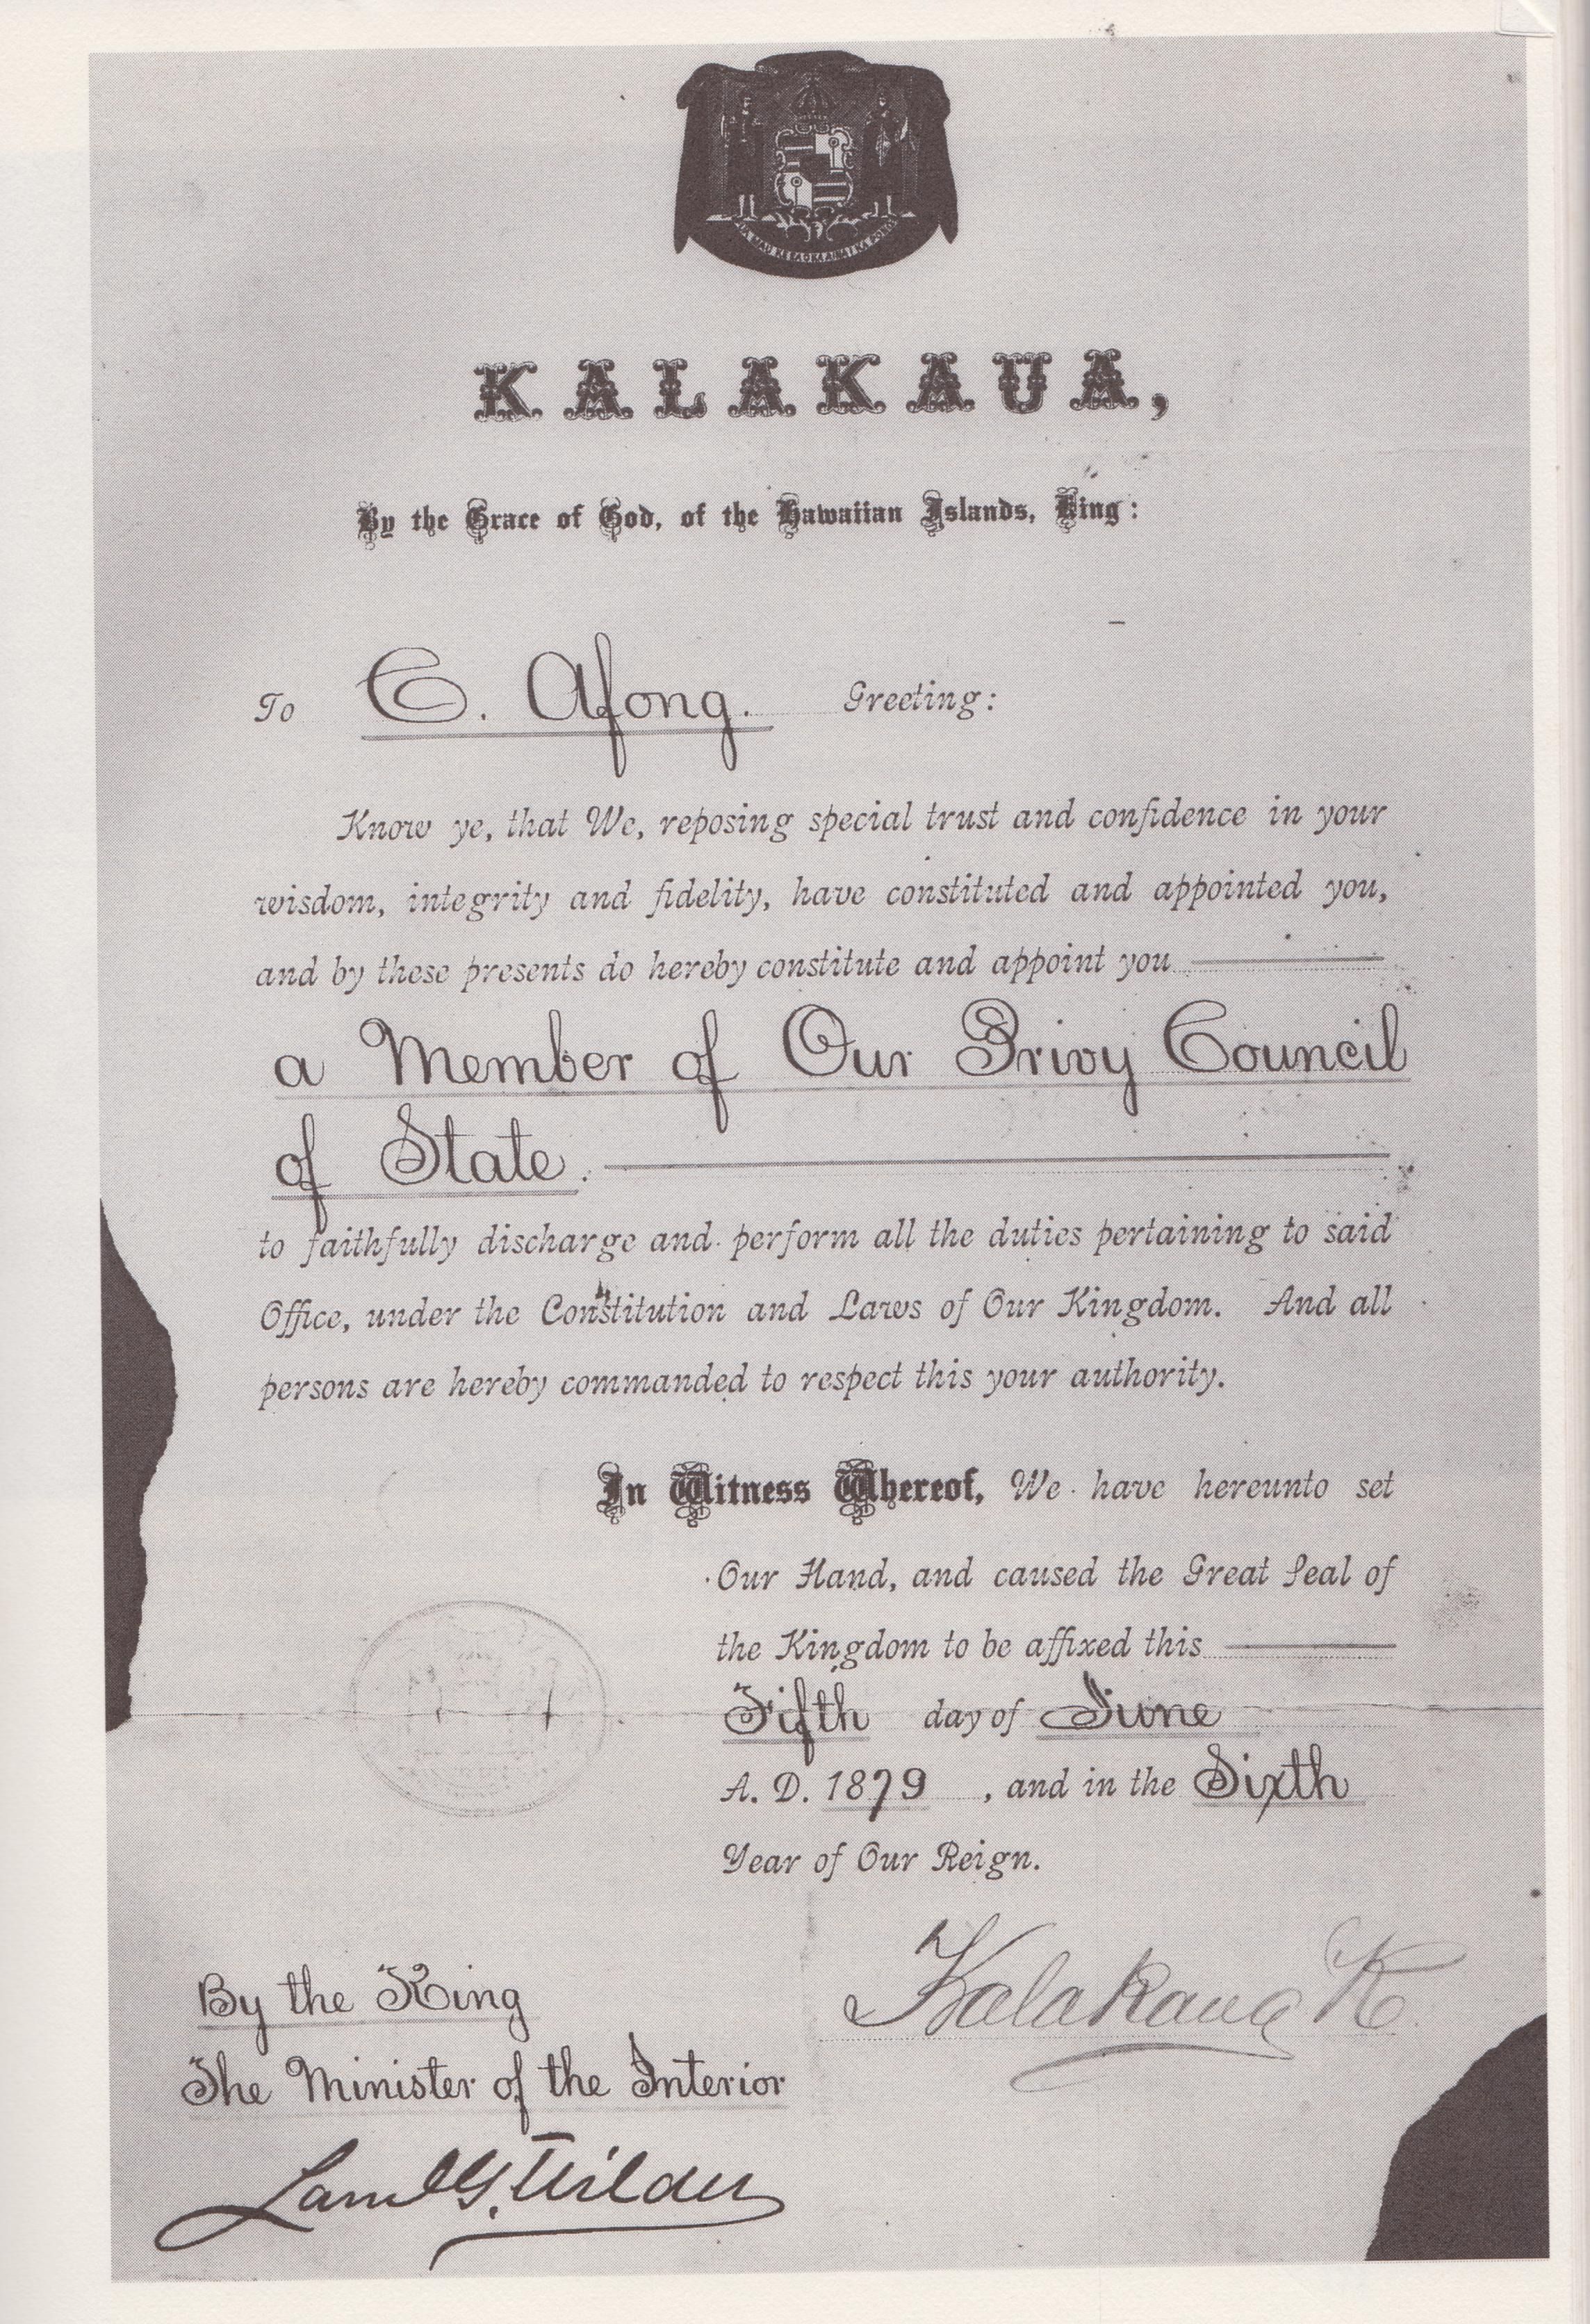 KALAKAUA,
By the Grace of God, of the Hawaiian Islands, King:
To C. Afong. Greeting:
Know ye, that We, reposing special trust and confidence in your
wisdom, integrity and fidelity, have constituted and appointed you,
and by these presents do hereby constitute and appoint you
a Member of Our Privy Council
of State.
to faithfully discharge and perform all the duties pertaining to said
Office, under the Constitution and Laws of Our Kingdom. And all
persons are hereby commanded to respect this your authority.
In Witness Whereof, We have hereunto set
Our Hand, and caused the Great Seal of
the Kingdom to be affixed this
Fifth day of June
A. D. 1879, and in the Sixth
Year of Our Reign.
Kalakaua R
By the King
The Minister of the Interior
Saml G. Wilder